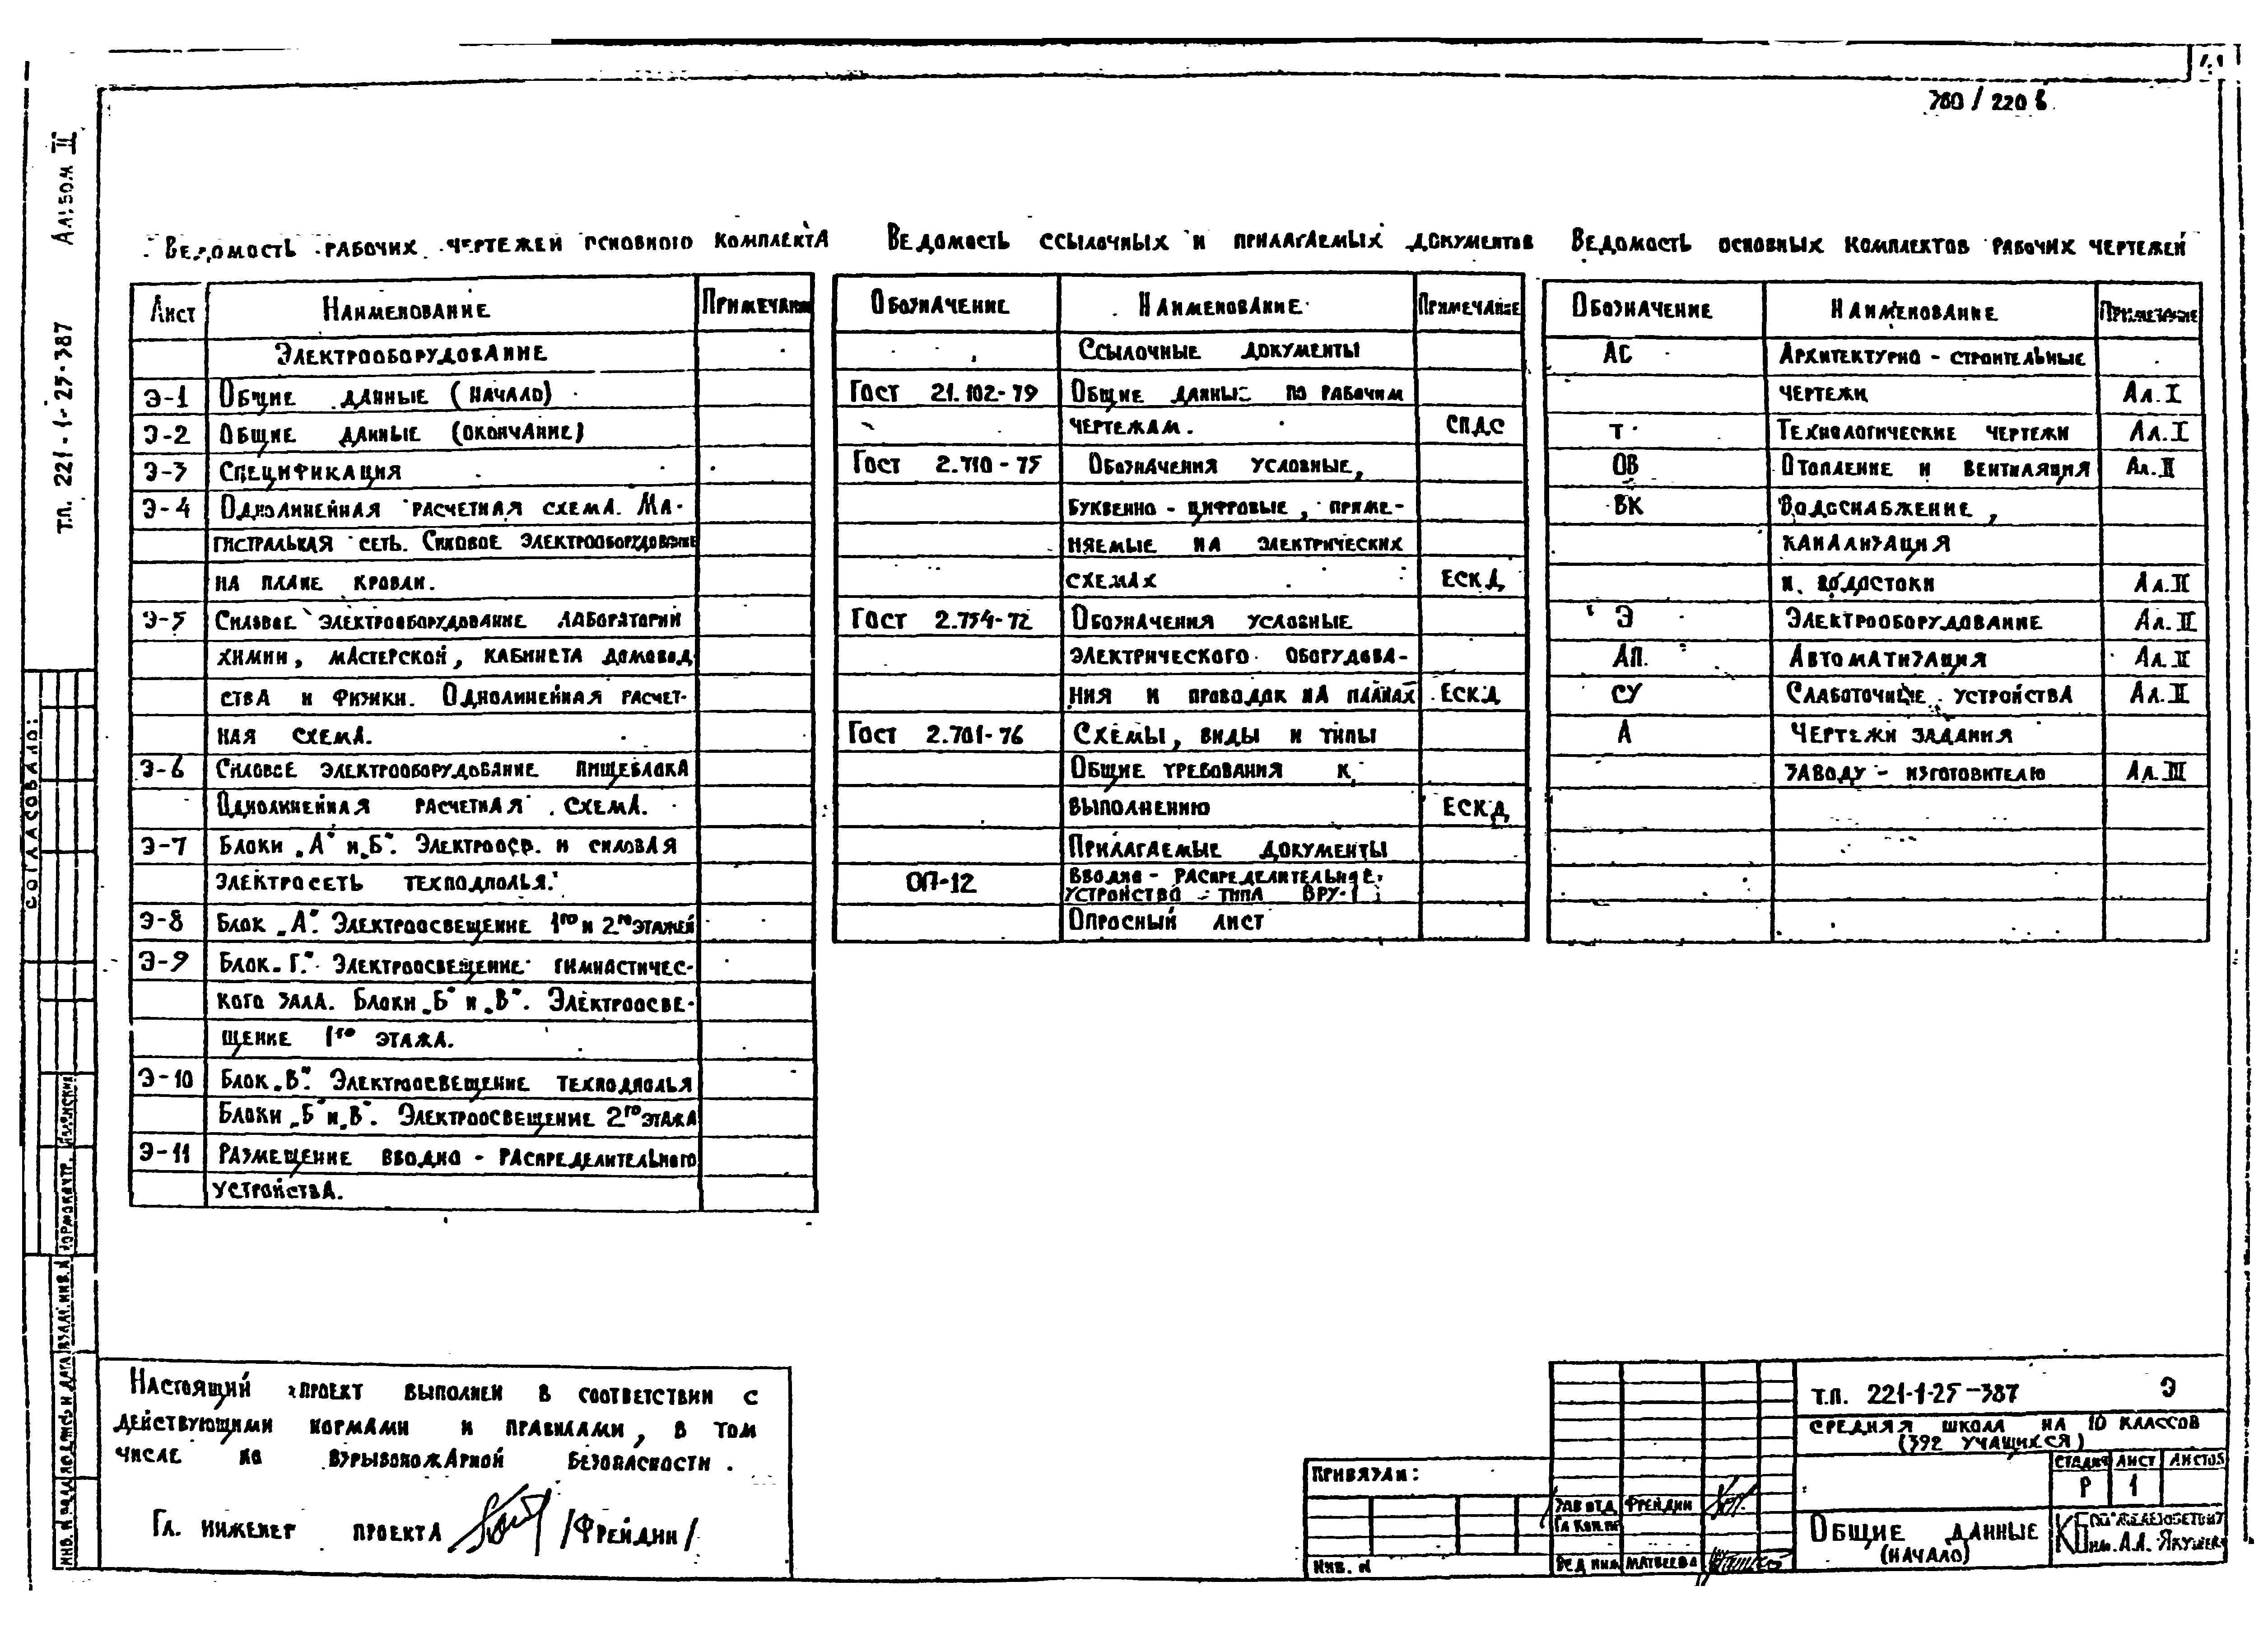 380 / 220 в
Т.П. 221-1-25-387 Альбом II
Ведомость рабочих чертежей основного комплекта
Лист Наименование Примечание
Электрооборудование
Э-1 Общие данные (начало)
Э-2 Общие данные (окончание)
Э-3 Спецификация
Э-4 Однолинейная расчетная схема. Ма-
гистральная сеть. Силовое электрооборудование
на плане кровли.
Э-5 Силовое электрооборудование лаборатории
химии, мастерской, кабинета домовод
ства и физики. Однолинейная расчет-
ная схема.
Э-6 Силовое электрооборудование пищеблока
Однолинейная расчетная схема.
Э-7 Блоки „А" и „Б". Электроосв. и силовая
электросеть техподполья.
Э-8 Блок „А". Электроосвещение 1го и 2го этажей
Э-9 Блок „Г". Электроосвещение гимнастичес-
кого зала. Блоки „Б" и „В". Электроосве-
щение 1го этажа.
Э-10 Блок „В". Электроосвещение техподполья
Блоки „Б" и „В". Электроосвещение 2го этажа
Э-11 Размещение вводно - распределительного
устройства.
Ведомость ссылочных и прилагаемых документов
Обозначение Наименование Примечание
Ссылочные документы
Гост 21.102-79 Общие данные по рабочим
чертежам. СПДС
Гост 2.710-75 Обозначения условные,
буквенно - цифровые, приме-
няемые на электрических
схемах ЕСКД
Гост 2.754-72 Обозначения условные
электрического оборудова-
ния и проводок на планах ЕСКД
Гост 2.701-76 Схемы, виды и типы
Общие требования к
выполнению ЕСКД
Прилагаемые документы
ОЛ-12 Вводно - распределительное
устройство типа ВРУ-1
Опросный лист
Ведомость основных комплектов рабочих чертежей
Обозначение Наименование Примечание
АС Архитектурно - строительные
чертежи Ал. I
Т Технологические чертежи Ал. I
ОВ Отопление и вентиляция Ал. II
ВК Водоснабжение,
канализация
и водостоки Ал. II
Э Электрооборудование Ал. II
АП. Автоматизация Ал. II
СУ Слаботочные устройства Ал. II
А Чертежи задания
заводу - изготовителю Ал. III
Согласовано:
Нормоконтр.
Инв. № подл. Подпись и дата Взам. инв. №
Настоящий проект выполнен в соответствии с
действующими нормами и правилами, в том
числе по взрывопожарной безопасности.
Гл. инженер проекта /Фрейдин/
Привязан:
Инв. №
Зав отд Фрейдин
Вед инж Матвеева
Т.П. 221-1-25-387 Э
Средняя школа на 10 классов
(392 учащихся)
Стадия Лист Листов
Р 1
Общие данные
(начало)
КБ по железобетону
им. А.А. Якушева